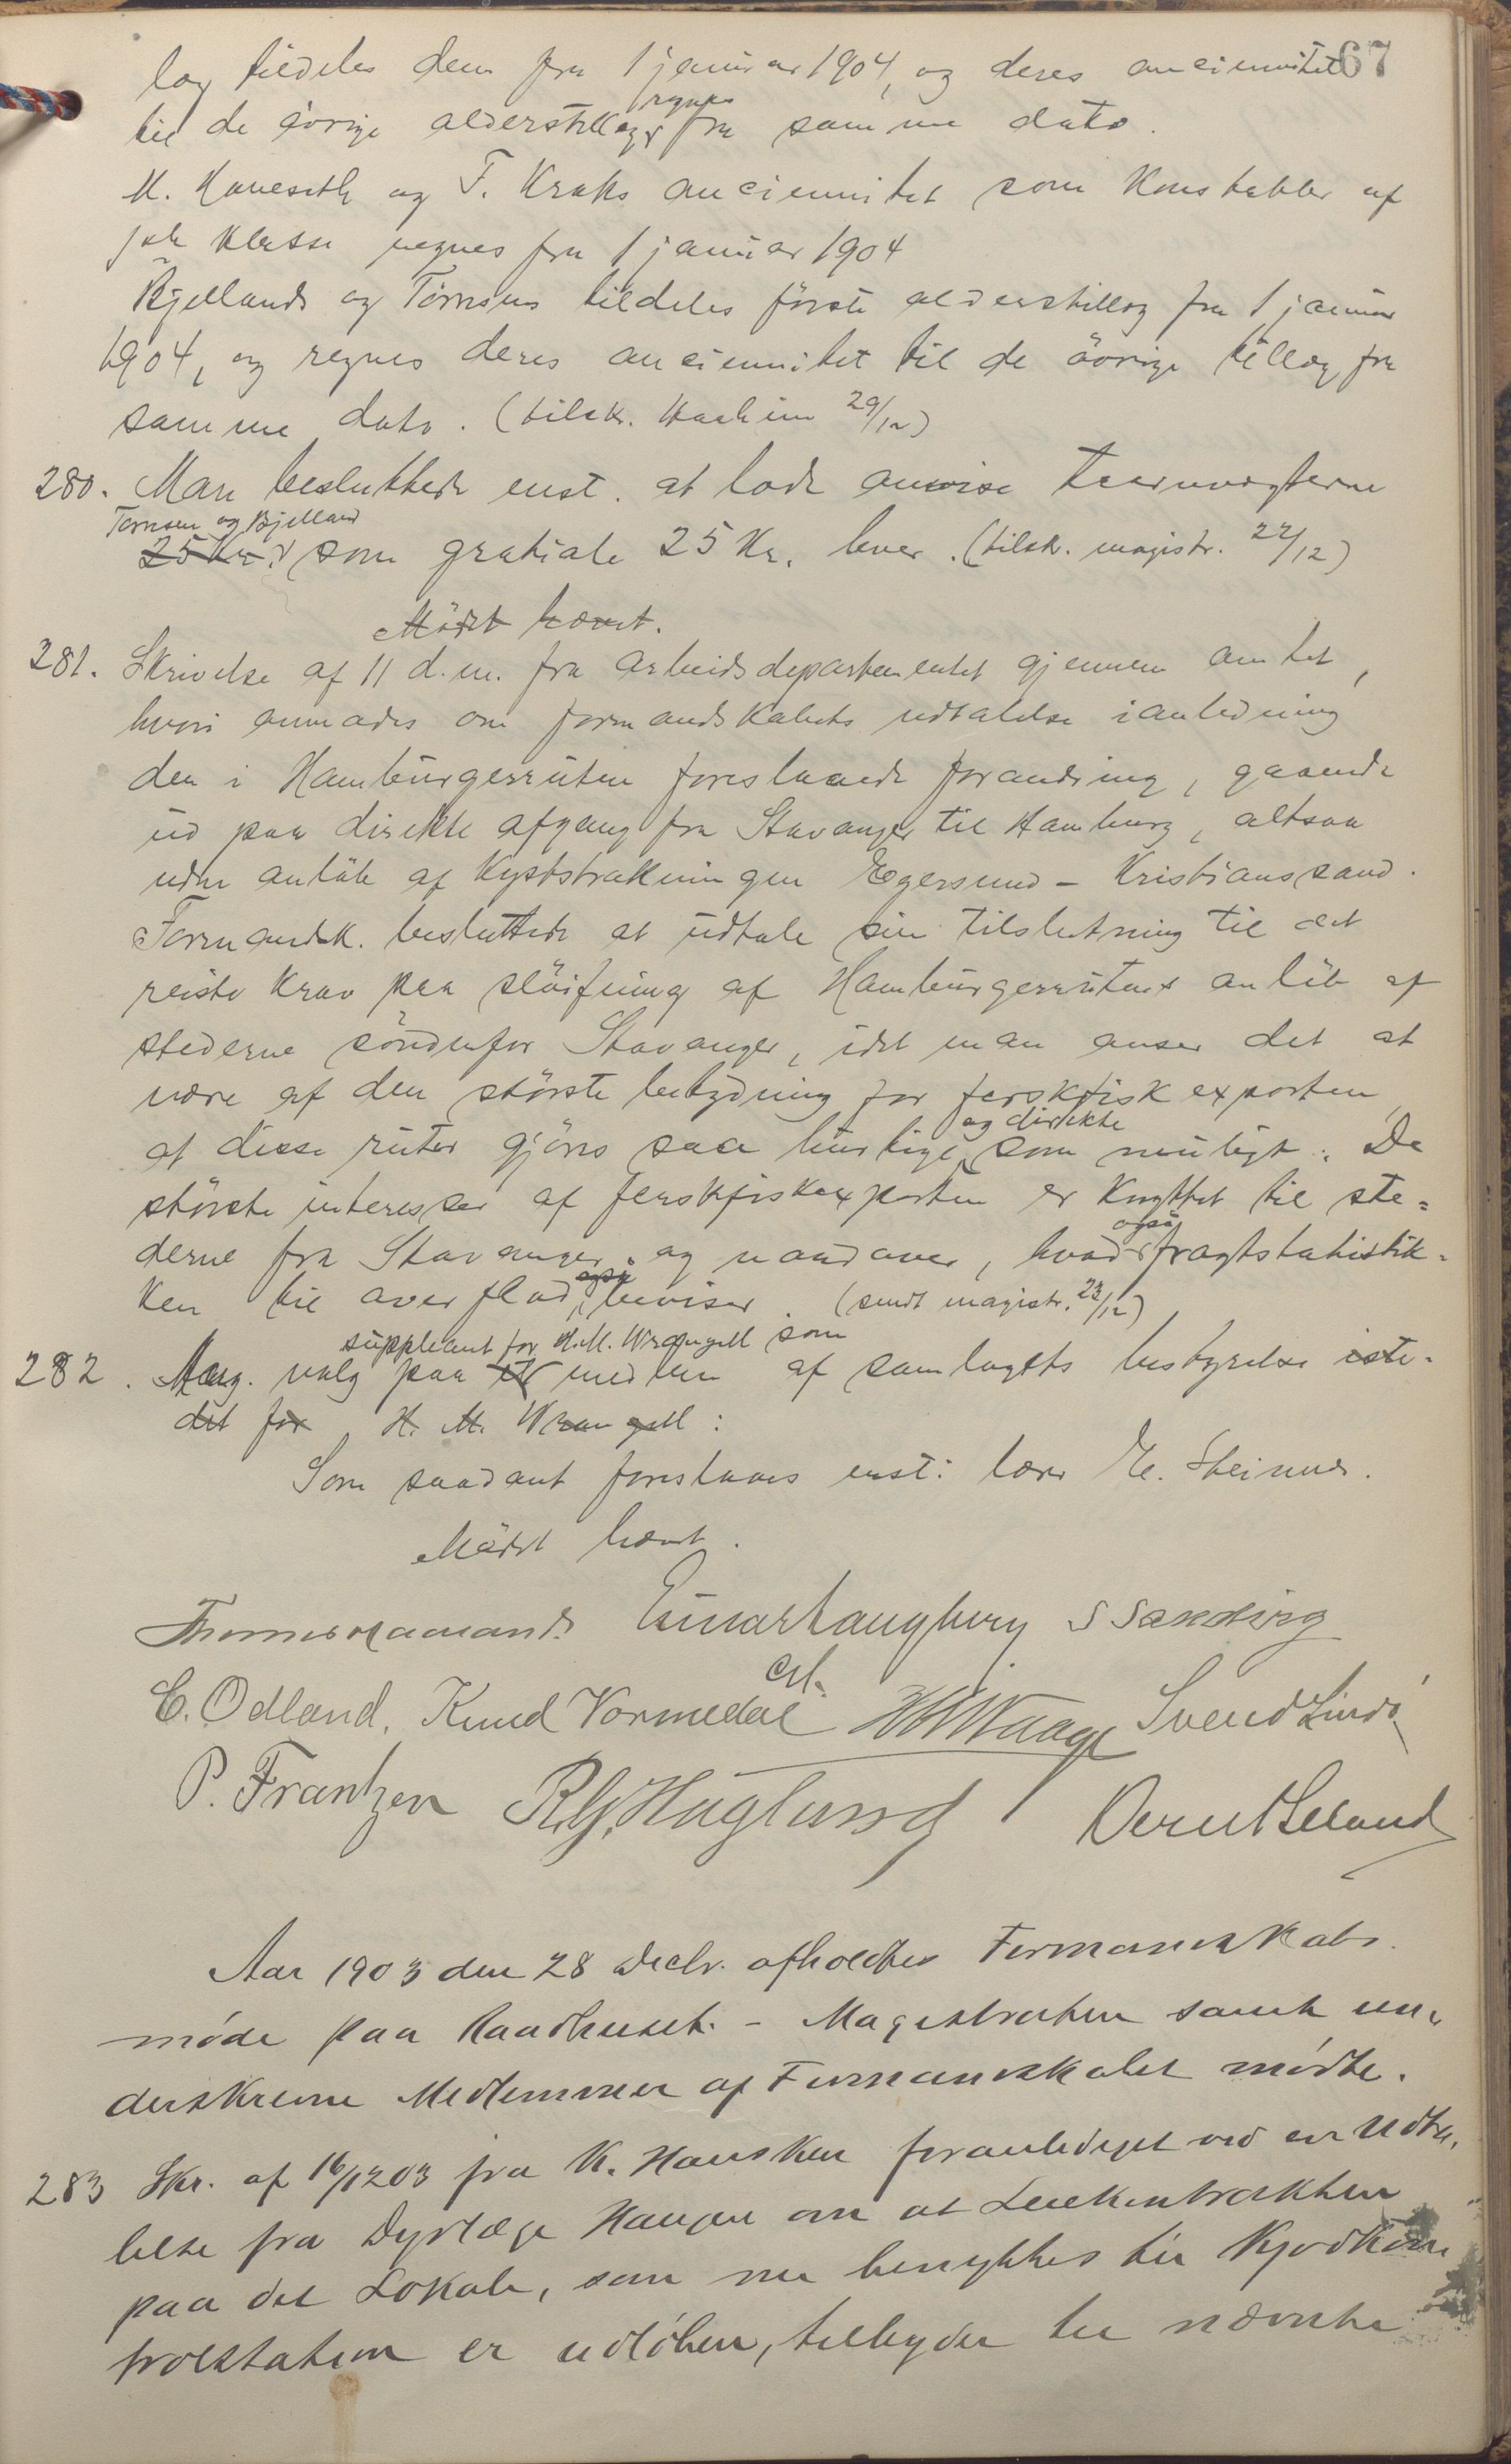 67
læg tildeles dem fra 1 januar 1904, og deres anciennitet
til de övrige alderstillæg regnes fra samme dato.
K. Haveseth og F. Kraks anciennitet som Konstabler af
1ste Klasse regnes fra 1 januar 1904
Bjellands og Törnsens tildeles förste alderstillæg fra 1 januar
1904, og regnes deres anciennitet til de övrige tillæg fra
samme dato. (tilsk. 29/12)
280. Man besluttede enst. at lade anvise taarnvægterne
Törnsen og Bjelland
25 Kr. som gratiale 25 Kr. hver. (tilsk. magistr. 22/12)
Mödet hævet.
281. Skrivelse af 11 d.m. fra arbeidsdepartementet gjennem amtet,
hvori anmodes om formandskabets udtalelse ianledning
den i Hamburgerruten foreslaaede forandring, gaaende
ud paa direkte afgang fra Stavanger til Hamburg, altsaa
uden anlöb af Kyststrækningen Egersund - Kristianssand.
Formandsk. besluttede at udtale sin tilslutning til det
reiste krav paa slöifning af Hamburgerrutens anlöb af
stederne söndenfor Stavanger, idet man anser det at
være af den störste betydning for ferskfiskexporten,
at disse ruter gjöres saa hurtige og direkte som muligt. De
störste interesser af ferskfiskexporten er Knyttet til ste=
derne fra Stavanger og nordover, hvad også fragtstatistik=
ken til overflod også beviser. (sendt magistr. 23/12)
suppleant for H.M. Wrangell som
282. Ang. valg paa et medlem af samlagets bestyrelse iste=
det for H. M. Wrangell:
Som saadant foreslaaes enst: lærer E. Steinnes.
Mödet hævet.
Thomas Haaland. Einar Langberg S Sandvig
C. Odland. Knud Vormedal HM Waage Svend Lindö
P. Frantzen R.G. Haglund Berent Leland
Aar 1903 den 28 Decbr. afholdtes Formandskabs
møde paa Raadhuset. - Magistraten samt un=
derskrevne Medlemmer af Formandskabet mødte.
283 Skr. af 16/12 03 fra K. Hansken foranlediget ved en Udta=
lelse fra Dyrlæge Haugen om at Leiekontrakten
paa det Lokale, som nu benyttes til Kjødkon
trolstation er udløben, tilbyder til nævnte